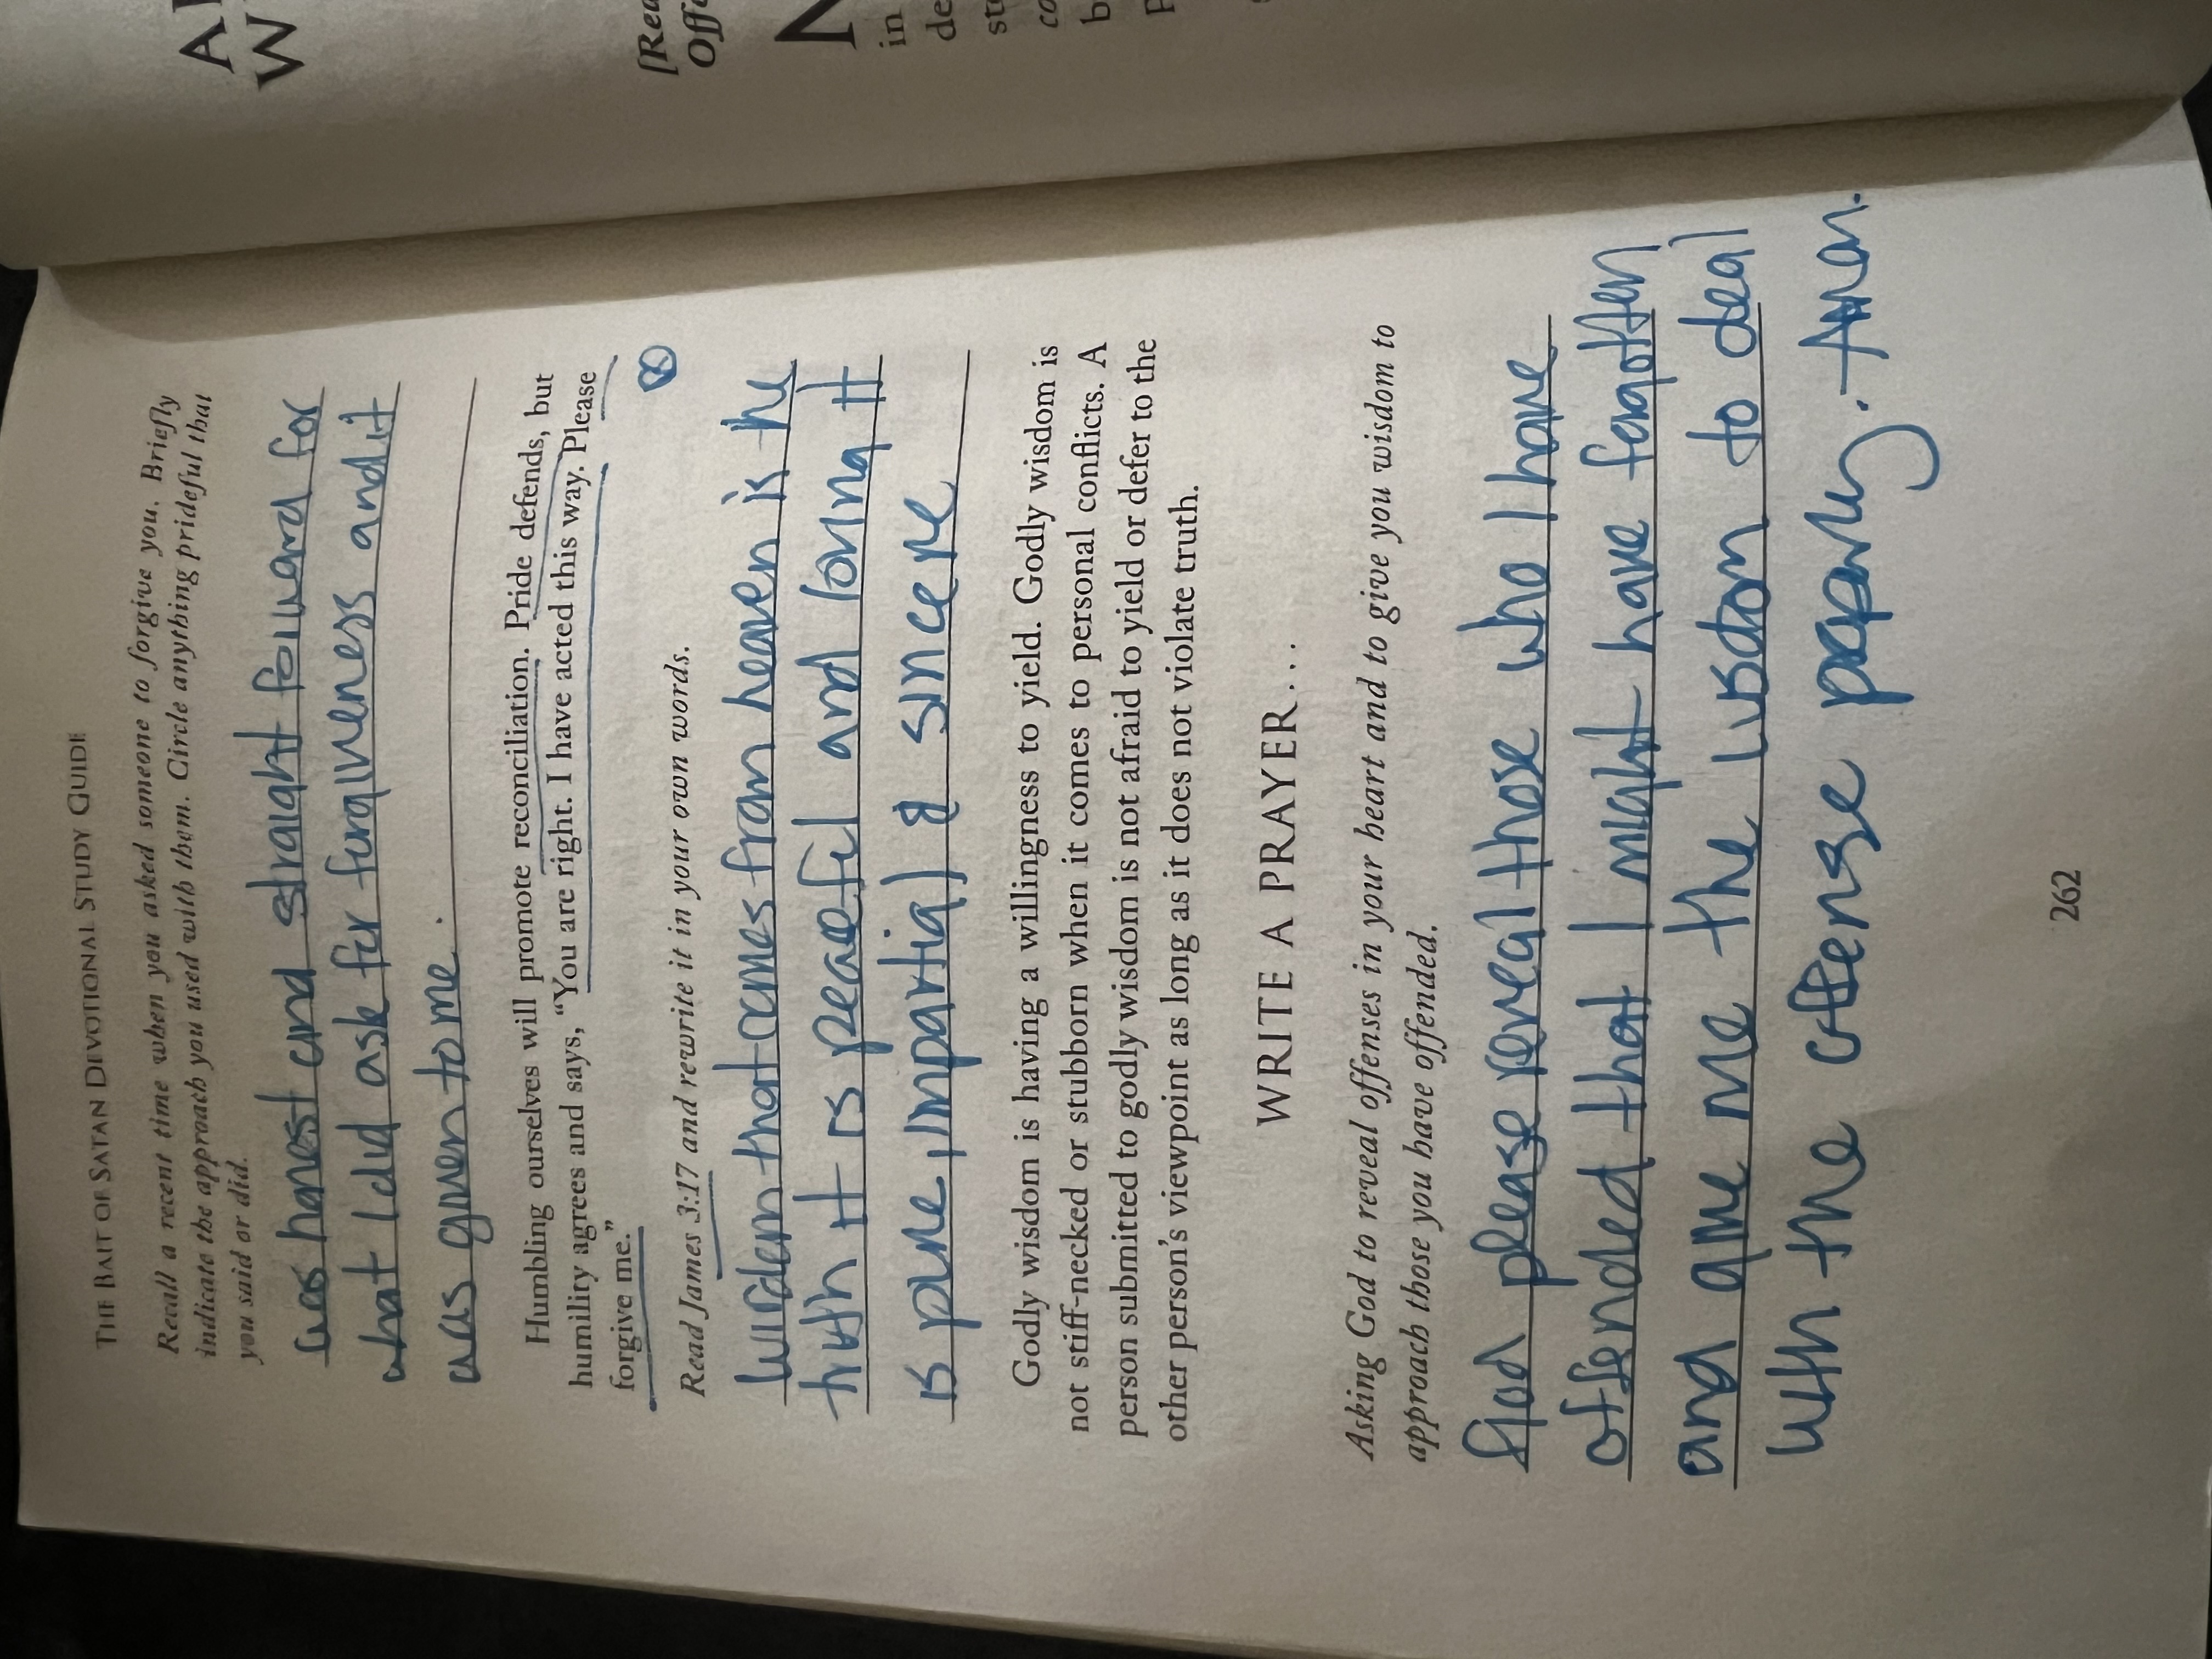 THE BAIT OF SATAN DEVOTIONAL STUDY GUIDE
Recall a recent time when you asked someone to forgive you. Briefly
indicate the approach you used with them. Circle anything prideful that
you said or did.
was honest and straight forward for
what I did ask for forgiveness and it
was given to me.
Humbling ourselves will promote reconciliation. Pride defends, but
humility agrees and says, “You are right. I have acted this way. Please
forgive me.”
Read James 3:17 and rewrite it in your own words.
wisdom that comes from heaven is the
truth it is peaceful and loving it
is pure, impartial & sincere
Godly wisdom is having a willingness to yield. Godly wisdom is
not stiff-necked or stubborn when it comes to personal conflicts. A
person submitted to godly wisdom is not afraid to yield or defer to the
other person’s viewpoint as long as it does not violate truth.
WRITE A PRAYER…
Asking God to reveal offenses in your heart and to give you wisdom to
approach those you have offended.
God please reveal those who I have
offended that I might have forgotten
and give me the wisdom to deal
with the offense properly. Amen.
262
[Rea
Offe
in
de
st
co
b
p